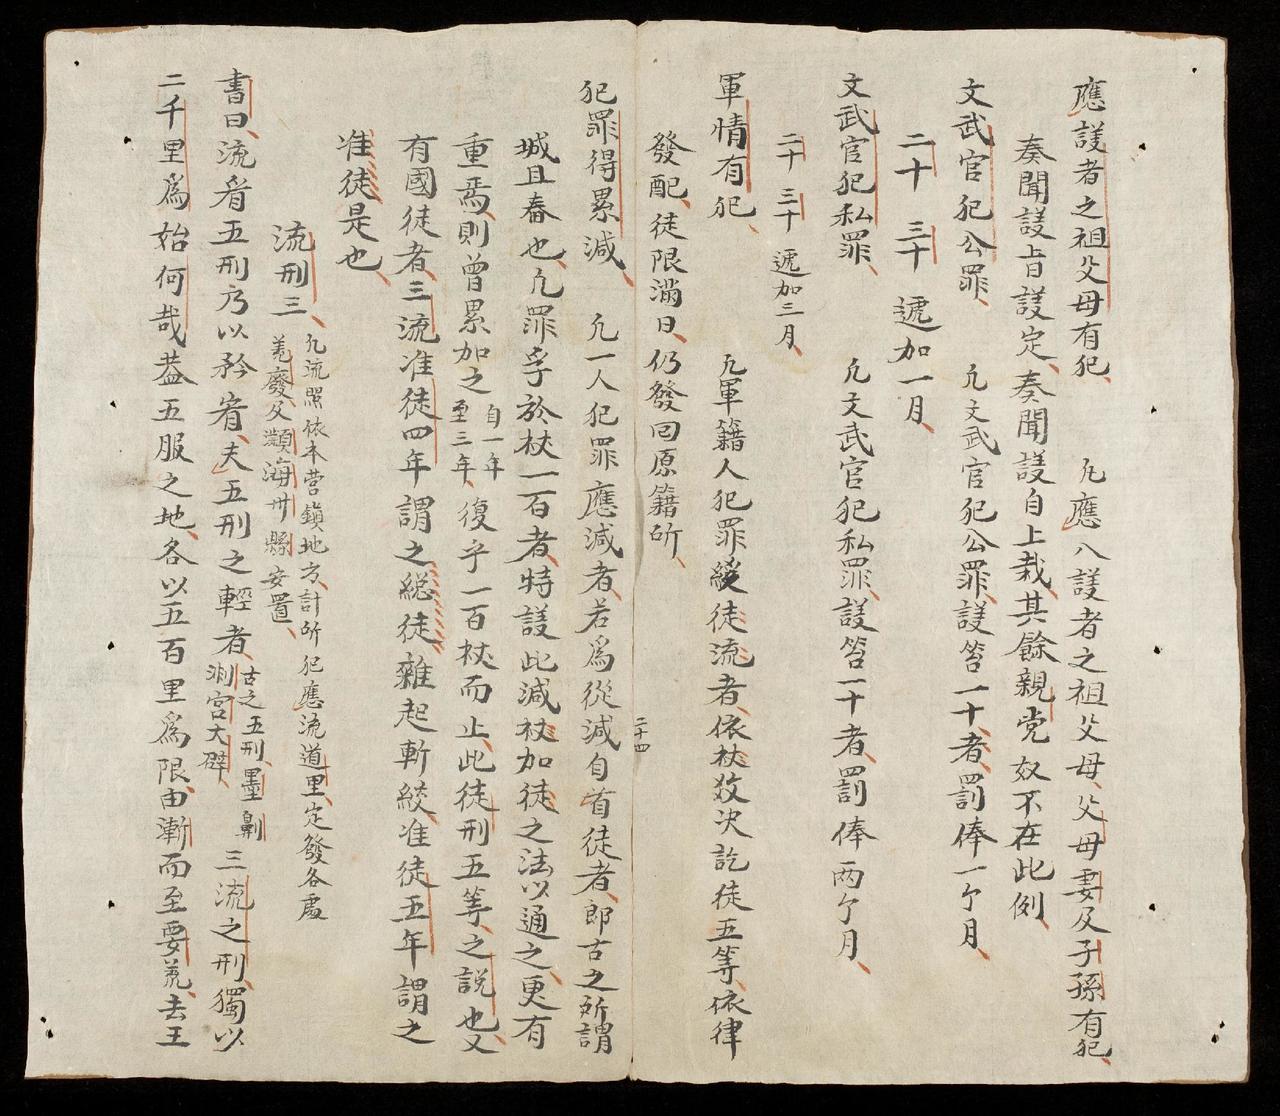 應議者之祖父母有犯、　凡應八議者之祖父母、父母妻及子孫有犯、
奏聞議旨議定、奏聞議自上裁、其餘親党奴不在此例、
文武官犯公罪、　凡文武官犯公罪、議笞一十、者、罰俸一个月、
二十　三十　遞加一月、
文武官犯私罪、　凡文武官犯私罪、議笞一十者罰俸两个月、
二十　三十　遞加三月、
軍情有犯、　凡軍籍人犯罪緩徒流者、依杖数决訖徒五等、依律
發配、徒限滿日、仍發回原籍所、
二十四
犯罪得累減、　凡一人犯罪應減者、若爲從減自首徒者、即古之所謂
城旦舂也、凡罪孚於杖一百者、特議此減杖加徒之法以通之、更有
重焉、則曾累加之自一年至三年、復乎一百杖而止、此徒刑五等、之説也、又
有國徒者、三流准徒四年謂之総徒、雜起斬絞、准徒五年謂之
准徒是也、
流刑三、
凡流照依本营鎮地方、計所犯應流道里、定發各處
羗廢、父瀕海卅縣安置、
書曰、流宥五刑乃以矜宥、夫五刑之輕者、古之五刑、墨劓剕宮大辟、三流之刑、獨以
二千里爲始何哉葢五服之地、各以五百里爲限、由漸而至要荒、去王